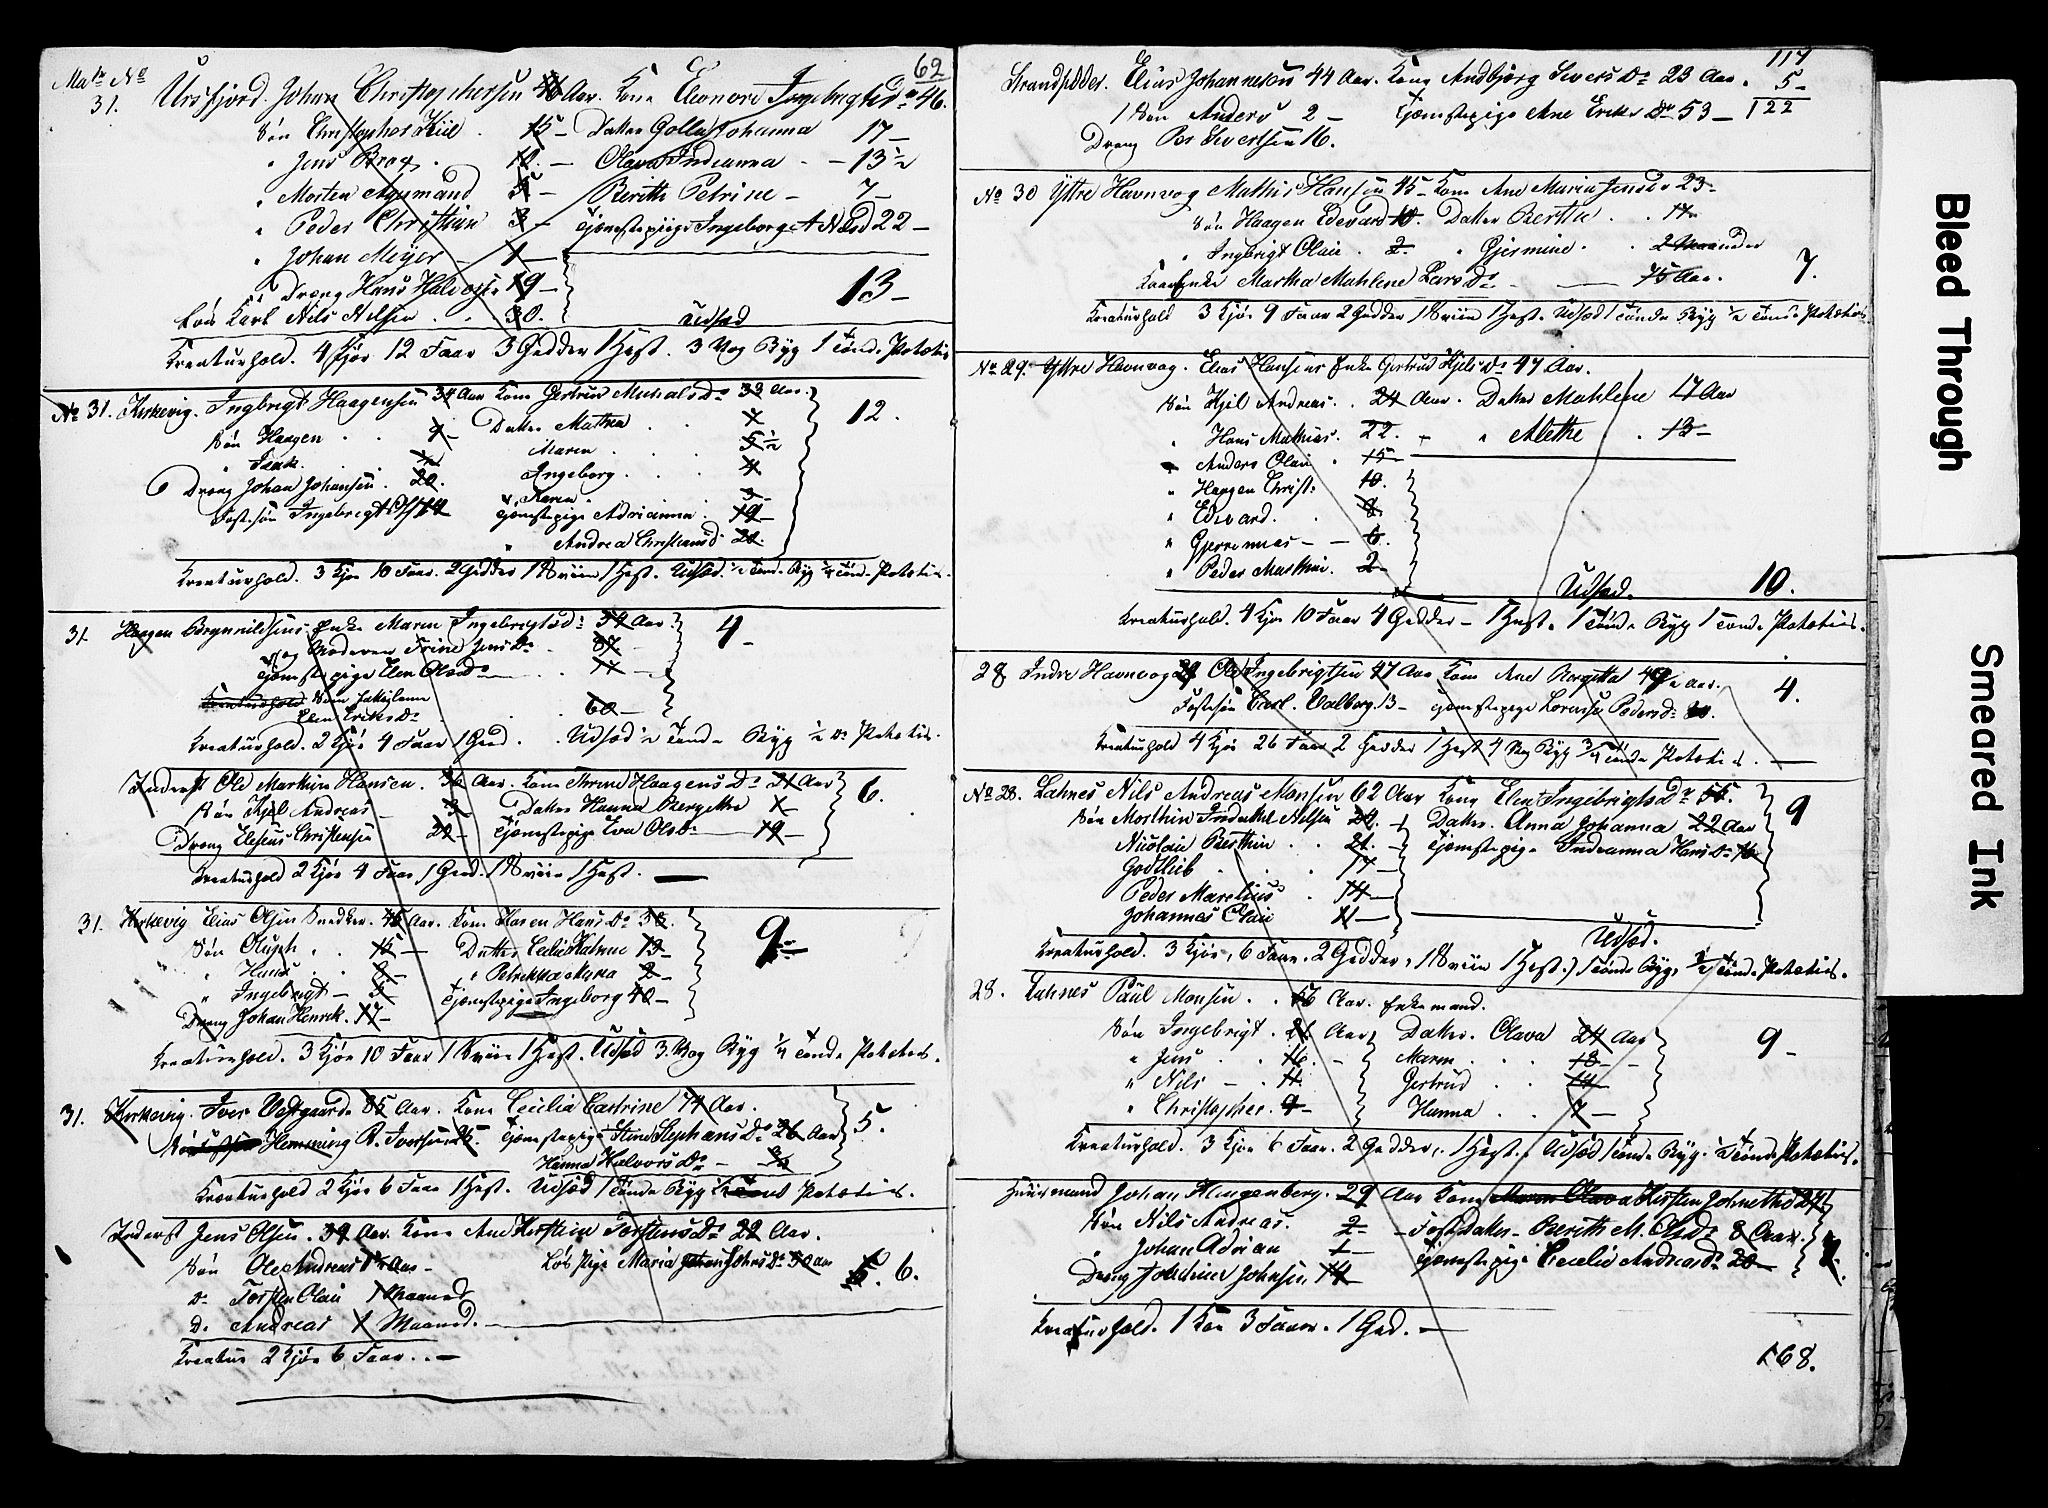 62
Matr No
31. Ursfjord. Johan Christophersen 46 Aar. Kone Eleonore Ingebrigtsd. 46.
Søn Christopher Kiil . 15 – Datter Golla Johanna 17 –
" Jens Brog . 10. – Olava Indianna - – 13 ½
" Morten Normand 5 – Berith Petrine – 7 –
" Peder Christian 3 – Tjænstepige Ingeborg A Nilsd 22 –
" Johan Meyer – 1 –
" Dreng Hans Halvors. 19 – 13 –
Løs Karl Nils Nilsen . . 30. Udsæd
Kreaturhold. 4 Kjør 12 Faar 3 Gedder 1 Hest. 3 Vog Byg 1 Tønde Potetis
No 31. Kirkevig. Ingbrigt Haagensen 34 Aar Kone Gertrud Musalsd. 33 Aar. 12.
Søn Haagen . . 9 – Datter Mathea
" Isak . . ½ Maren . . . 5 ½
Dreng Johan Johansen . 20. Ingeborg . . . 4
Fostersøn Ingebrigt 14 Karen . . . 3 –
Tjænstepige Adrianna . 19 –
" Andrea Christiansd. 20.
Kreaturhold. 3 Kjør 10 Faar. 2 Gedder 1 Sviin 1 Hest. Udsæd. ½ Tønde Byg ¼ Tønde Potetis.
31. Haagen Brynnildsens Enke Maren Ingebrigtsd: 54 Aar 4 –
og Moderen Trine Jensd. . 87. –
Tjænstepige Elen Olsd. . .
Kreaturhold
Elen Eriksd. . . 60 –
Kreaturhold. 2 Kjør 4 Faar 1 Ged. . Udsæd ½ Tønde Byg ½ do Potetis.
Inderst Ole Martin Hansen . 36 Aar. Kone Thrine Haagensd. 31 Aar 6.
Søn Kjel Andreas – 3 Datter Hanna Bergitte 1 –
Dreng Elesius Christensen 22 – Tjænstepige Eva Olsd. 19 –
Kreaturhold 2 Kjør 4 Faar 1 Ged. 1 Sviin 1 Hest. –
31. Kirkevig Elias Olsen Snedker. 45 Aar. Kone Karen Hansd. 38. 9 –
Søn Oluph . . 15 – Datter Cecilia Katrine 13 –
" Hans . . 8 – " Petrikka Maria 2 –
" Ingebrigt – 5 Tjænstepige Ingeborg 40 –
Dreng Johan Henrik . 17 –
Kreaturhold. 3 Kjør 10 Faar 1 Sviin 1 Hest. Udsæd 3. Vog Byg ¼ Tønde Potetis.
31. Kirkevig. Iver Vestgaard 85 Aar. Kone Cecilia Cathrine 74 Aar. 5.
Hemming R. Iversen 25. Tjænstepige Stine Stephansd. 26 Aar
Hanna Halvorsd. –
Kreaturhold 2 Kjør 6 Faar 1 Hest. Udsæd 1 Tønde Byg ½ Tønde Potetis.
Inderst Jens Olsen . 34 Aar. Kone Ane Kirstine Torstensd. 22 Aar.
Søn Ole Andreas Aar – Løs Pige Maria Johnsd. 50 Aar 6.
Do Torsten Olai 1 Maaned
Do Andreas 1 Maaned. –
Kreatur 2 Kjør 6 Faar . . –
117
Strandsidder. Elias Johannesen 44 Aar. Kone Andbjørg Siversd. 23 Aar . 5 –
1 Søn Anders 2 – Tjænstepige Ane Eriksd. 53 – 122
Dreng Per Sivertsen 16.
No 30 Yttre Havnvog Mathis Hansen 45 – Kone Ane Maria Jensd. 23 –
Søn Haagen Edevard 10. Datter Bertha . .
" Ingbrigt Olai . 2 . " Gjermine . . 2 Maaneder
Enke Martha Mahlene Larsd. – 75 Aar. 7.
Kreaturhold 3 Kjør 9 Faar 2 Gedder 1 Sviin 1 Hest. Udsæd 1 Tønde Byg ½ Tønde Potetis.
No 29. Yttre Havnvog. Elias Hansens Enke Gertrud Kjelsd. 47 Aar.
Søn Kjel Andreas. . 24 Aar . Datter Mahlene 17 Aar
" Hans Mathias. 22. – " Alethe . . 13 –
" Anders Olai . 15 –
" Haagen Christ: 10.
" Edvard. . 8.
" Gjeremias – – 6.
" Peder Marthin. 2 – Udsæd. 10.
Kreaturhold. 4 Kjør 10 Faar 4 Gedder – 1 Hest. 1 Tønde Byg 1 Tønde Potetis.
28 Indre Havnvog Ole Ingebrigtsen 47 Aar Kone Ane Bergitta Aar. 4.
Fostersøn Carl. Valberg. 13 – Tjænstepige Lovisa Pedersd.
Kreaturhold 4 Kjør 26 Faar 2 Gedder 1 Hest 4 Vog Byg ¾ Tønde Potetis . –
No 28. Lahnes Nils Andreas Monsen 62 Aar Kone Elen Ingebrigtsd. 55. 9
Søn Morthin Nilsen 29. – Datter. Anna Johanna 22 Aar
Nicolai Berthin . . 21. – Tjænstepige Indianna Hansd. 16
Godtlieb . . . 17 –
Peder Marelius . 14 –
Johannes Olai 11 – Udsæd.
Kreaturhold. 3 Kjør, 6 Faar. 2 Gedder, 1 Sviin 1 Hest. 1 Tønde Byg. ½ Tønde Potetis.
28. Lahnes Paul Monsen . . 56 Aar. Enkemand.
Søn Ingebrigt . 21 Aar Datter. Olava 24 Aar 9 –
" Jens . . 16. – Maren . . . 18 –
" Nils – . 11. Gertrud . . 14 –
" Christopher. 9 – Hanna . . 7 –
Kreaturhold. 3 Kjør 6 Faar. 2 Gedder. 1 Hest. Udsæd 1 Tønde Byg. ½ Tønde Potetis.
Huusmand Johan Klingenberg. 29 Aar Kone Kirsten Johnsd.
Søn Nils Andreas. 2 – – Fosterdatter – Berith M. Olsd. 8 Aar.
" Johan Adrian 1 – Tjænstepige Cecelie Andreasd. 20 –
Dreng Johnsen 14
Kreaturhold. 1 Koe 3 Faar. 1 Ged. –
168.
Bleed Through
Smeared Ink